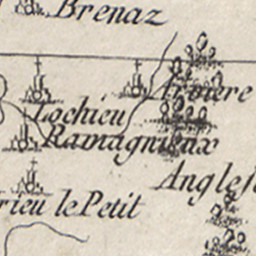 Brenaz
Arviere
Lochieu
Ramagnieux
Anglefo
rieu le Petit